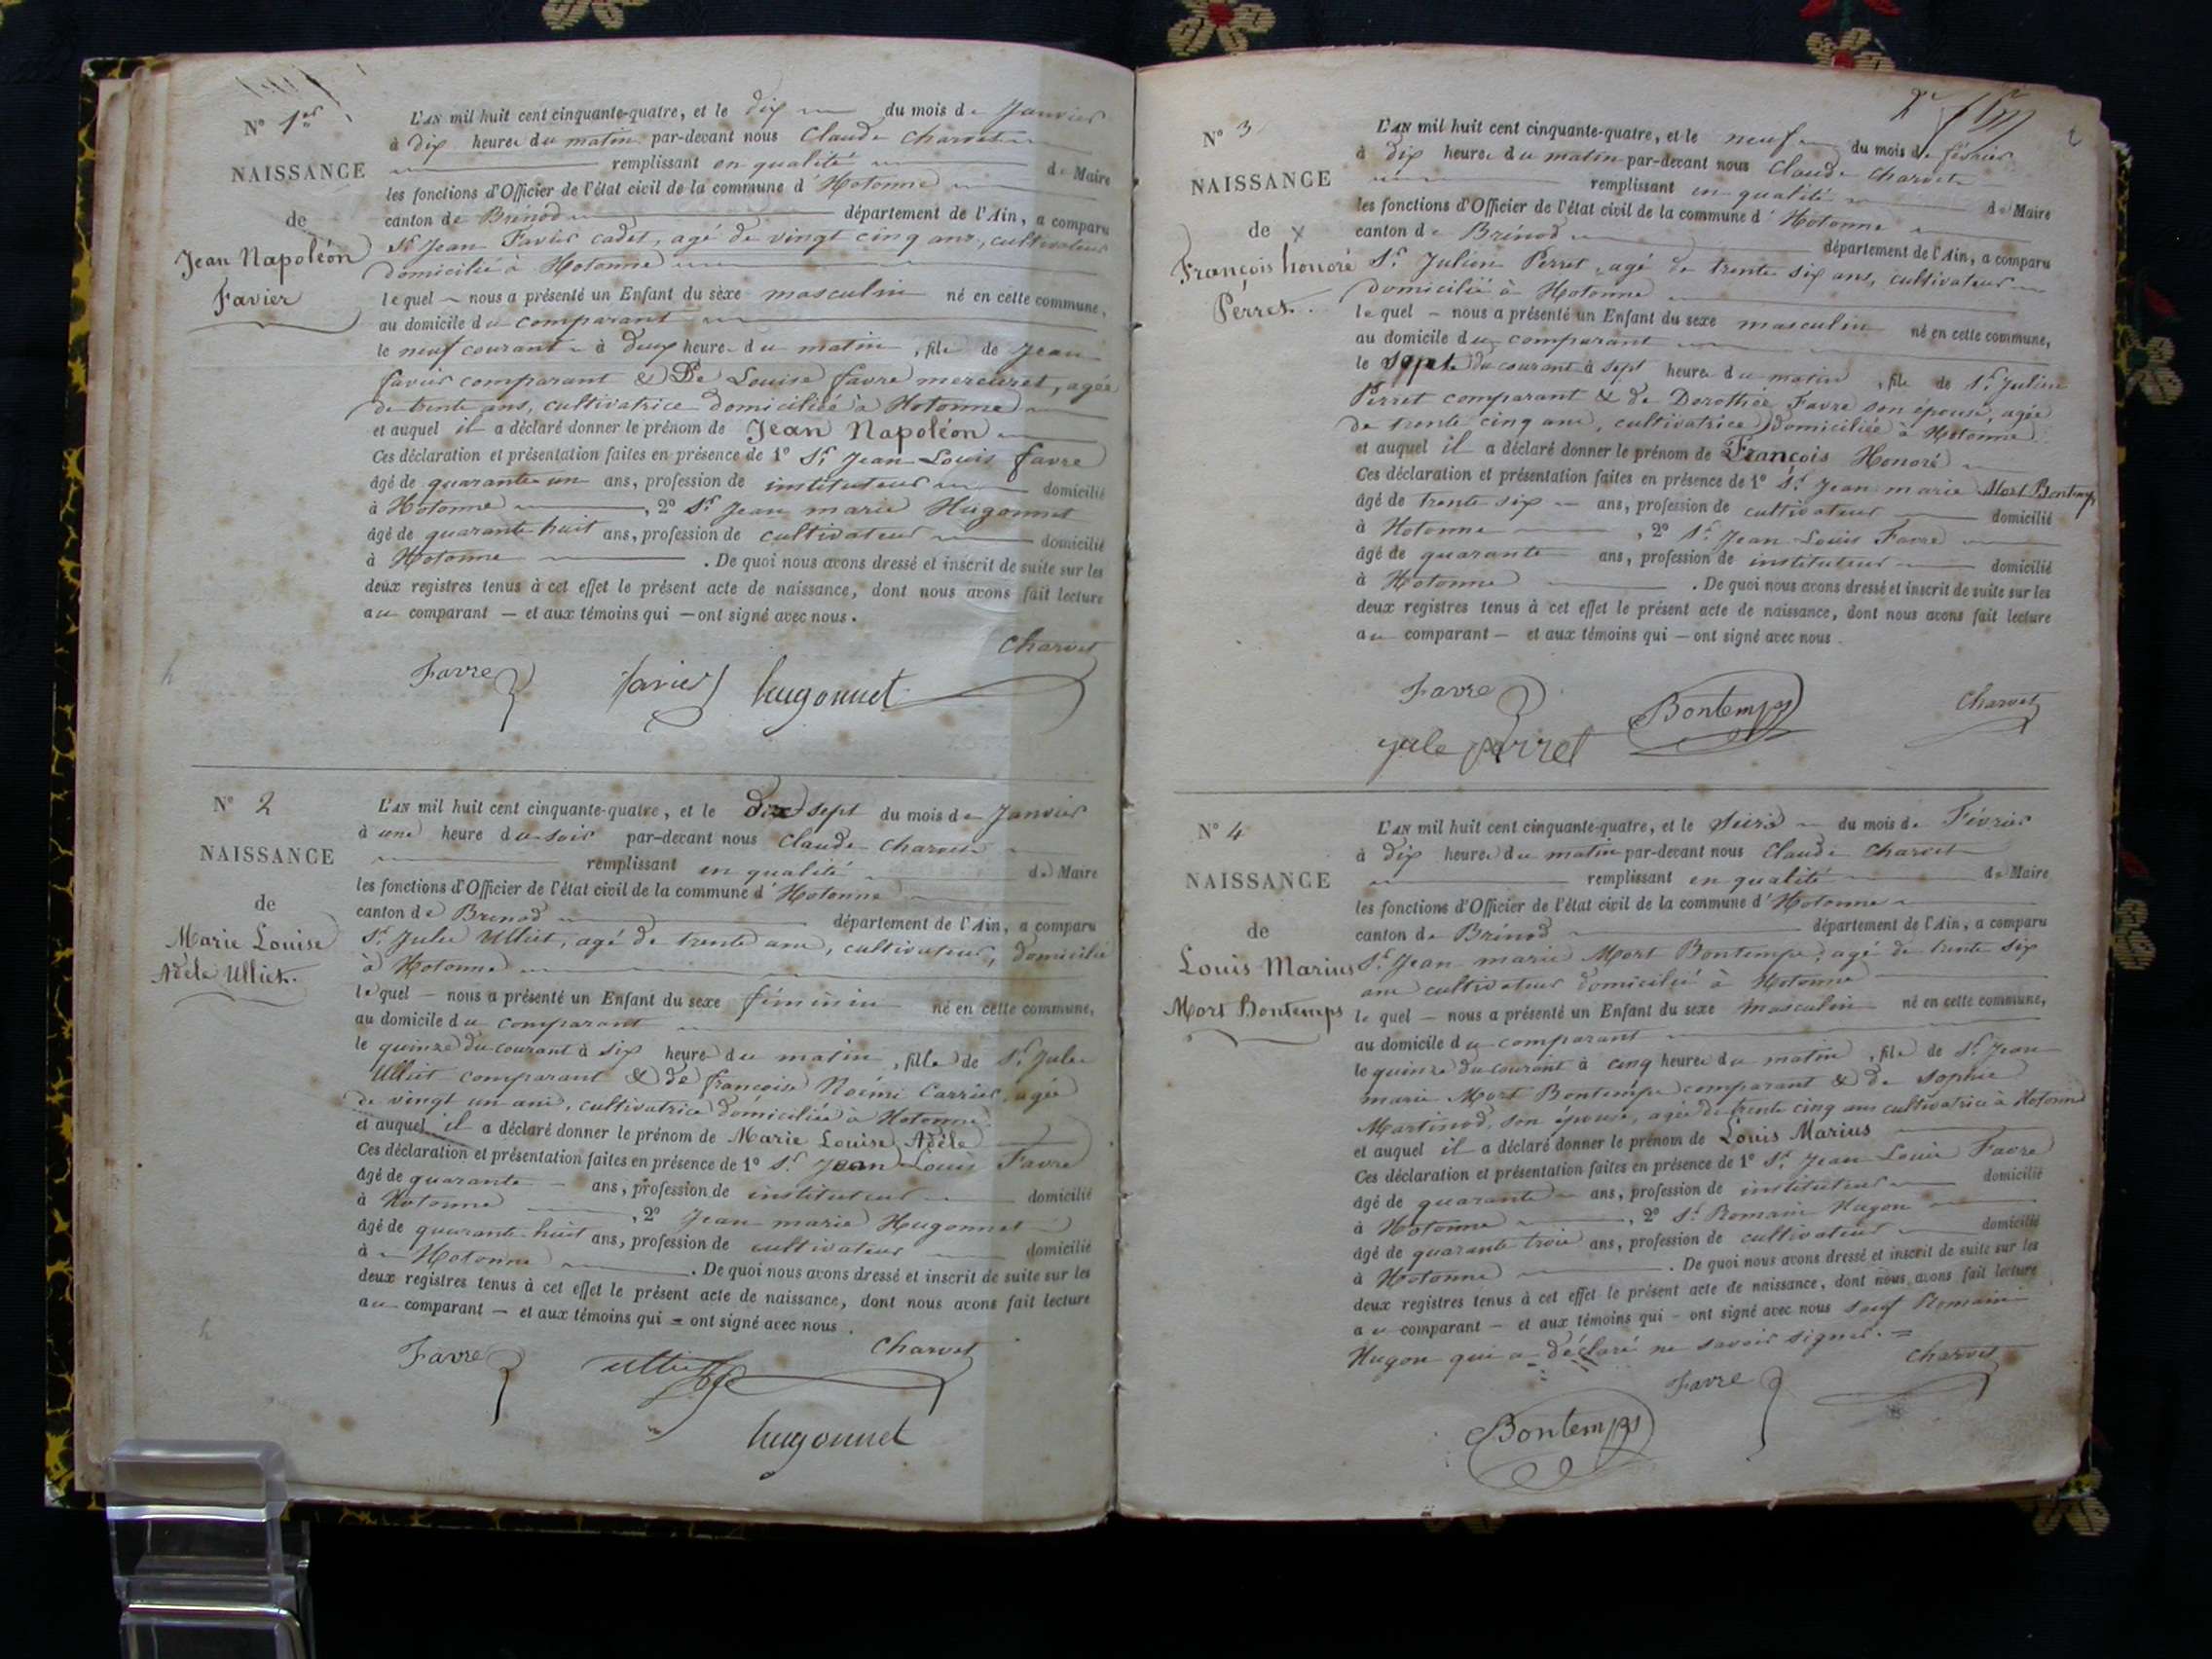 N° 1er
NAISSANCE
de
Jean Napoléon
Favier
L'AN mil huit cent cinquante-quatre, et le dix du mois de Janvier
à dix heures du matin par-devant nous Claude Charvet
remplissant en qualité de Maire
les fonctions d'Officier de l'état civil de la commune d'Hotonne
canton de Brénod département de l'Ain, a comparu
Sr Jean Favier cadet, agé de vingt cinq ans, cultivateur
domicilié à Hotonne
lequel nous a présenté un Enfant du sèxe masculin né en cette commune,
au domicile du comparant
le neuf courant à deux heures du matin, fils de Jean
favier comparant & De Louise favre mercieret, agée
de trente ans, cultivatrice domiciliée à Hotonne
et auquel il a déclaré donner le prénom de Jean Napoléon
Ces déclaration et présentation faites en présence de 1° Sr Jean Louis favre
âgé de quarante un ans, profession de instituteur domicilié
à Hotonne, 2° Sr Jean marie Hugonnet
âgé de quarante huit ans, profession de cultivateur domicilié
à Hotonne. De quoi nous avons dressé et inscrit de suite sur les
deux registres tenus à cet effet le présent acte de naissance, dont nous avons fait lecture
au comparant — et aux témoins qui — ont signé avec nous.
Charvet
Favre favier hugonnet
N° 2
NAISSANCE
de
Marie Louise
Adèle Ulliet.
L'AN mil huit cent cinquante-quatre, et le Dix sept du mois de Janvier
à une heure du soir par-devant nous Claude Charvet
remplissant en qualité de Maire
les fonctions d'Officier de l'état civil de la commune d'Hotonne
canton de Brenod département de l'Ain, a comparu
Sr Jules Ulliet, agé de trente ans, cultivateur, domicilié
à Hotonne
lequel — nous a présenté un Enfant du sexe féminin né en cette commune,
au domicile du comparant
le quinze du courant à six heures du matin, fille de Sr Jules
Ulliet comparant & de françoise Noémi Carrier, agée
de vingt un ans, cultivatrice domiciliée à Hotonne
et auquel il a déclaré donner le prénom de Marie Louise Adèle
Ces déclaration et présentation faites en présence de 1° Sr Jean Louis Favre
âgé de quarante — ans, profession de instituteur domicilié
à Hotonne, 2° Jean marie Hugonnet
âgé de quarante huit ans, profession de cultivateur domicilié
à Hotonne. De quoi nous avons dressé et inscrit de suite sur les
deux registres tenus à cet effet le présent acte de naissance, dont nous avons fait lecture
au comparant — et aux témoins qui = ont signé avec nous.
Favre Ulliet Charvet
hugonnet
N° 3
NAISSANCE
de X
François honoré
Perret.
L'AN mil huit cent cinquante-quatre, et le neuf du mois de février
à dix heures du matin par-devant nous Claude Charvet
remplissant en qualité de Maire
les fonctions d'Officier de l'état civil de la commune d'Hotonne
canton de Brénod département de l'Ain, a comparu
Sr Julien Perret, agé de trente six ans, cultivateur
domicilié à Hotonne
lequel — nous a présenté un Enfant du sexe masculin né en cette commune,
au domicile du comparant
le sept du courant à sept heures du matin, fils de Sr Julien
Perret comparant & de Dorothée Favre son épouse, agée
de trente cinq ans, cultivatrice domiciliée à Hotonne
et auquel il a déclaré donner le prénom de François Honoré
Ces déclaration et présentation faites en présence de 1° Sr Jean marie Mort Bontemps
âgé de trente six ans, profession de cultivateur domicilié
à Hotonne, 2° Sr Jean Louis Favre
âgé de quarante ans, profession de instituteur domicilié
à Hotonne. De quoi nous avons dressé et inscrit de suite sur les
deux registres tenus à cet effet le présent acte de naissance, dont nous avons fait lecture
au comparant — et aux témoins qui — ont signé avec nous.
Favre Bontemps Charvet
perret
N° 4
NAISSANCE
de
Louis Marius
Mort Bontemps
L'AN mil huit cent cinquante-quatre, et le Seize du mois de Février
à dix heures du matin par-devant nous Claude Charvet
remplissant en qualité de Maire
les fonctions d'Officier de l'état civil de la commune d'Hotonne
canton de Brénod département de l'Ain, a comparu
Sr Jean marie Mort Bontemps, agé de trente six
ans cultivateur domicilié à Hotonne
lequel — nous a présenté un Enfant du sexe masculin né en cette commune,
au domicile du comparant
le quinze du courant à cinq heures du matin, fils de Sr Jean
marie Mort Bontemps comparant & de Sophie
Martinod, son épouse, agée de trente cinq ans cultivatrice à Hotonne
et auquel il a déclaré donner le prénom de Louis Marius
Ces déclaration et présentation faites en présence de 1° Sr Jean Louis Favre
âgé de quarante ans, profession de instituteur domicilié
à Hotonne, 2° Sr Romain Hugon
âgé de quarante trois ans, profession de cultivateur domicilié
à Hotonne. De quoi nous avons dressé et inscrit de suite sur les
deux registres tenus à cet effet le présent acte de naissance, dont nous avons fait lecture
au comparant — et aux témoins qui — ont signé avec nous sauf Romain
Hugon qui a déclaré ne savoir signer. =
Favre Charvet
Bontemps